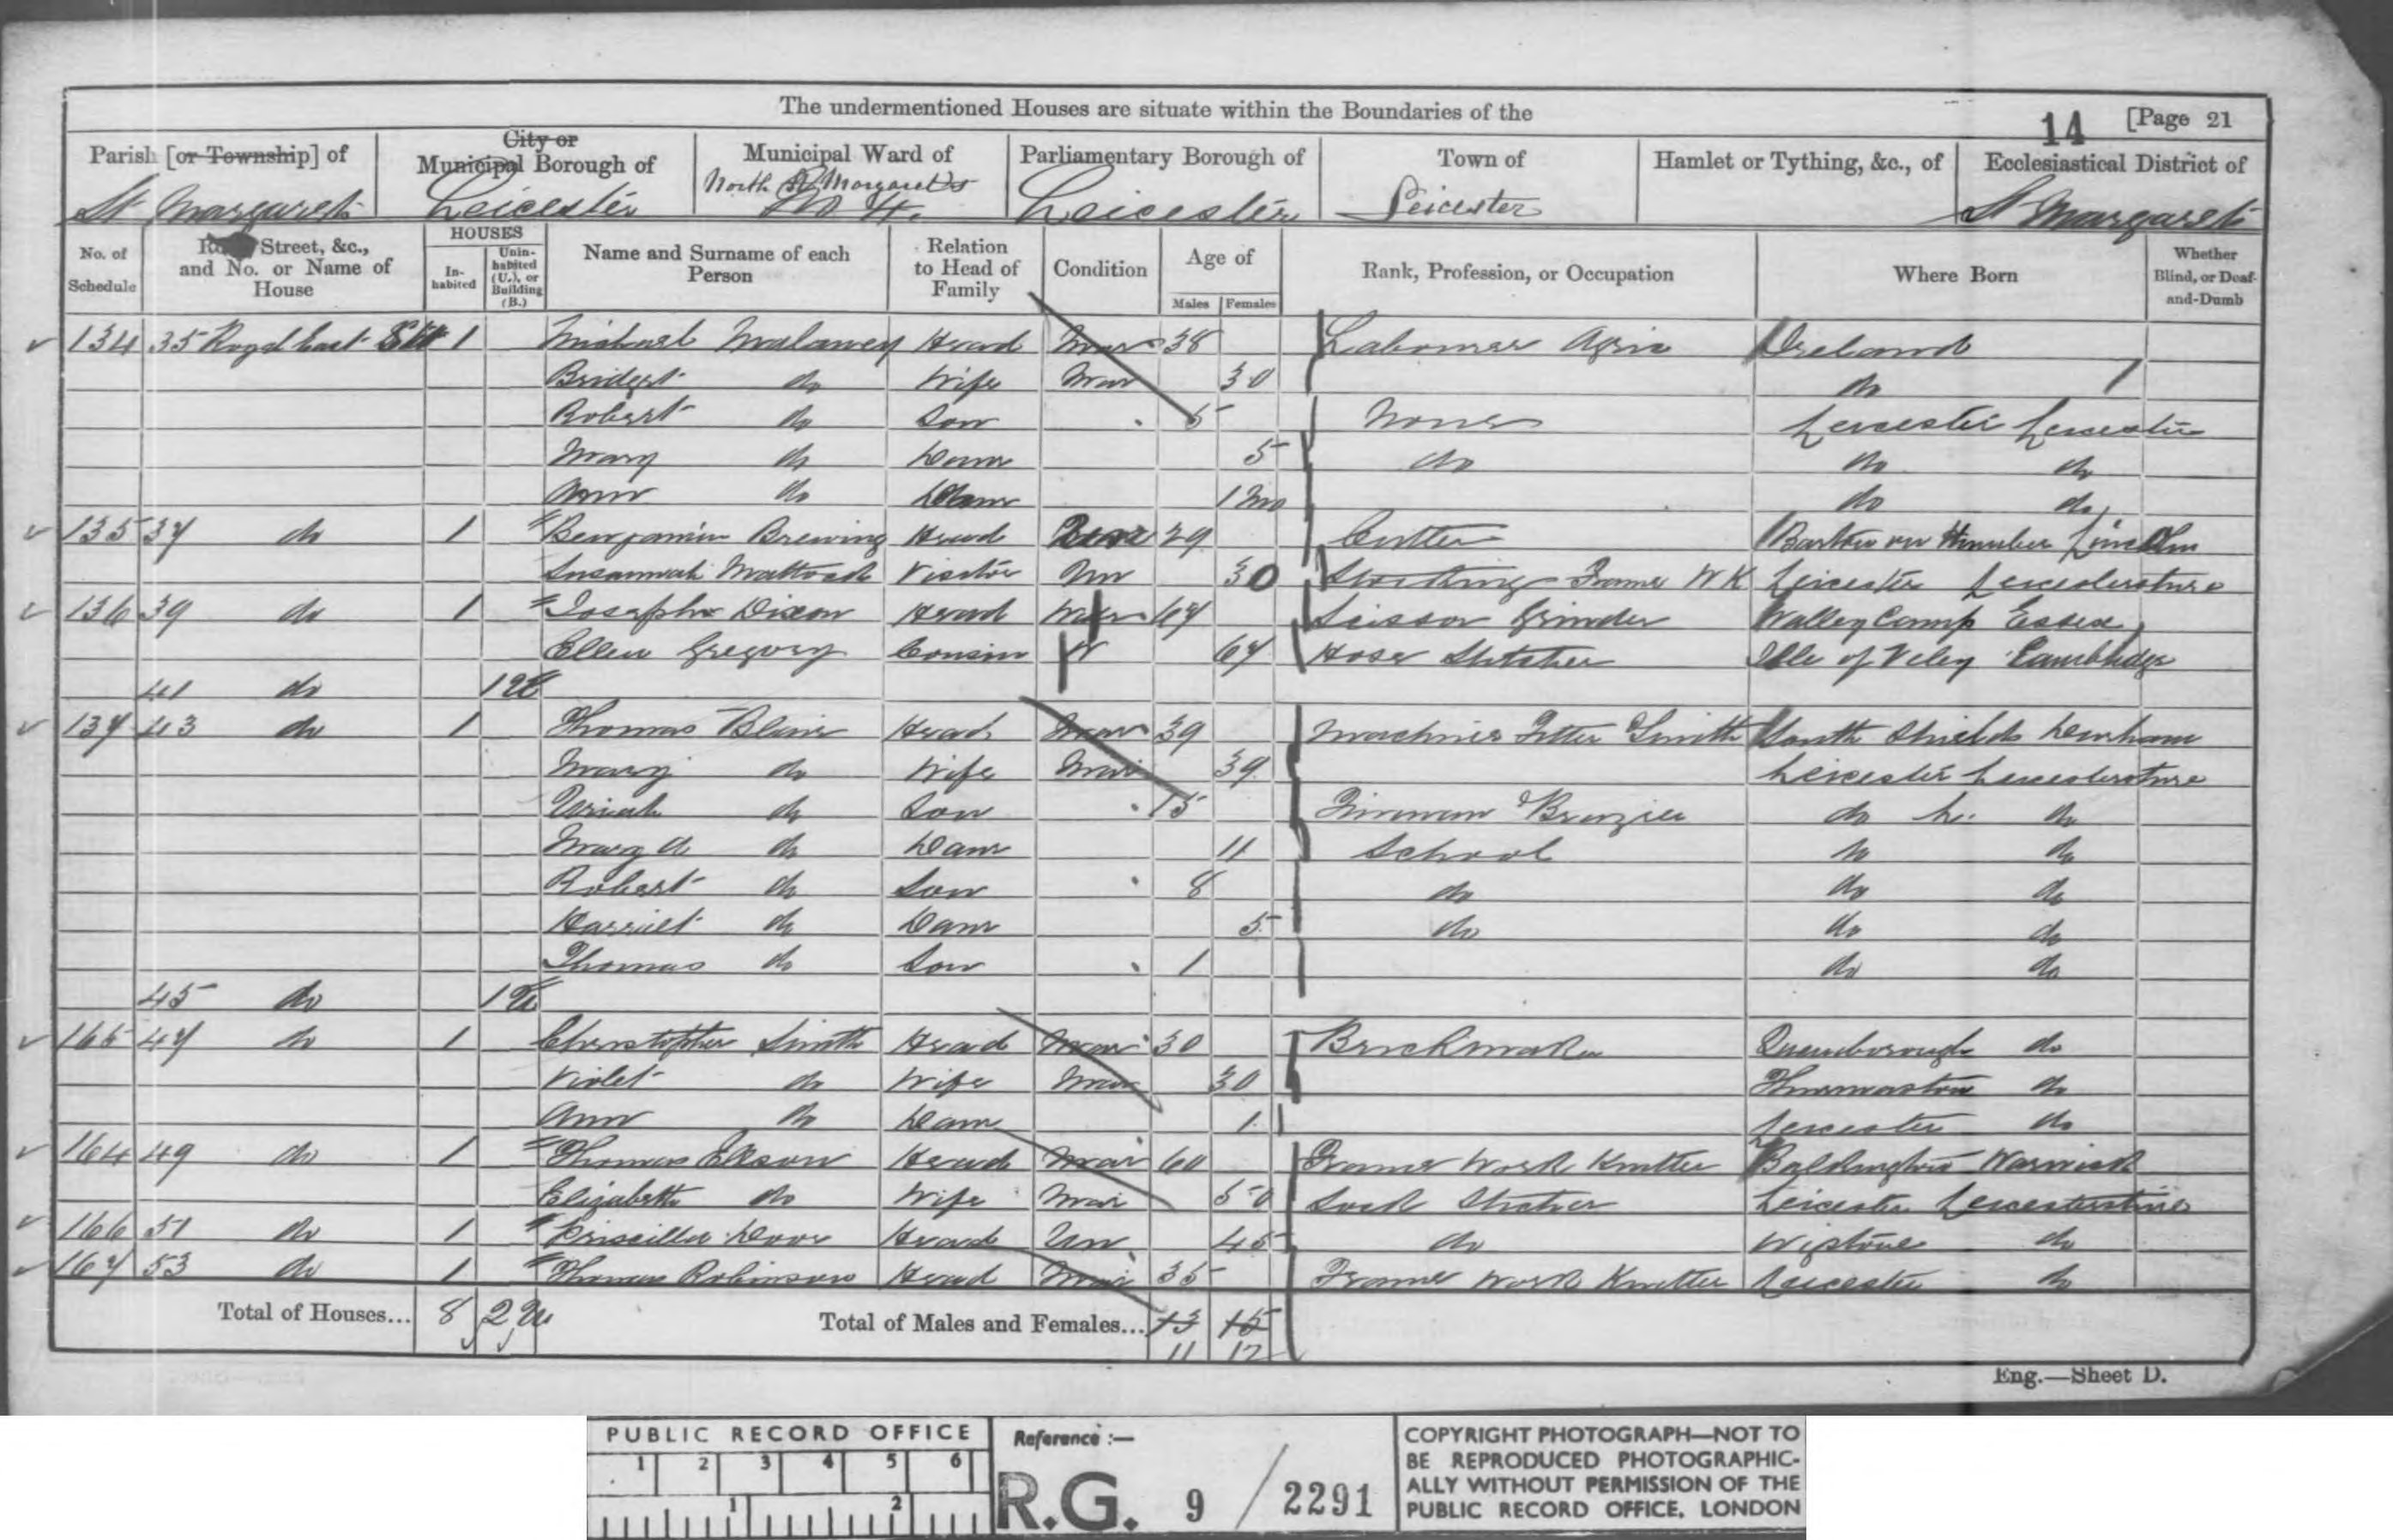 The undermentioned Houses are situate within the Boundaries of the
14 [Page 21
Parish [or Township] of
City or Municipal Borough of
Municipal Ward of
Parliamentary Borough of
Town of
Hamlet or Tything, &c., of
Ecclesiastical District of
St Margarets
Leicester
North St Margarets No 4.
Leicester
Leicester
St Margarets
No. of Schedule
Street, &c., and No. or Name of House
HOUSES
In-habited
Unin-habited (U.), or Building (B.)
Name and Surname of each Person
Relation to Head of Family
Condition
Age of
Males
Females
Rank, Profession, or Occupation
Where Born
Whether Blind, or Deaf-and-Dumb
134 35 Royal East St 1 Michael Malaney Head Mar 38 Labourer Agric Ireland
Bridget do Wife Mar 30 do
Robert do Son 5 None Leicester Leicester
Mary do Daur 5 do do do
Ann do Daur 1 Mo do do
135 37 do 1 Benjamin Brewing Head 29 Cutter Barton on Humber Lincoln
Susannah Mattock Visitor Un 30 Stocking Frame W K Leicester Leicestershire
136 39 do 1 Joseph Dixon Head 67 Scissor Grinder Essex
Ellen Gregory Cousin W 67 Hose Stitcher Isle of Cambridge
41 do 1 U
137 43 do 1 Thomas Blair Head Mar 39 Machine Fitter Smith South Shields Durham
Mary do Wife Mar 39 Leicester Leicestershire
Uriah do Son 15 Tinman Brazier do do
Mary A do Daur 11 School do do
Robert do Son 8 do do do
Harriet do Daur 5 do do do
Thomas do Son 1 do do
45 do 1 U
165 47 do 1 Christopher Smith Head Mar 30 Brickmaker Queniborough do
Violet do Wife Mar 30 Thurmaston do
Ann do Daur 1 Leicester do
164 49 do 1 Thomas Ellson Head Mar 60 Frame Work Knitter Warwick
Elizabeth do Wife Mar 50 Sock Stitcher Leicester Leicestershire
166 51 do 1 Priscilla Head Un 45 do do
167 53 do 1 Thomas Robinson Head Mar 35 Frame Work Knitter Leicester do
Total of Houses... 8 2 U
Total of Males and Females... 13 15
11 12
Eng.—Sheet D.
PUBLIC RECORD OFFICE
1 2 3 4 5 6
1 2
Reference :—
R.G. 9 / 2291
COPYRIGHT PHOTOGRAPH—NOT TO
BE REPRODUCED PHOTOGRAPHIC-
ALLY WITHOUT PERMISSION OF THE
PUBLIC RECORD OFFICE, LONDON